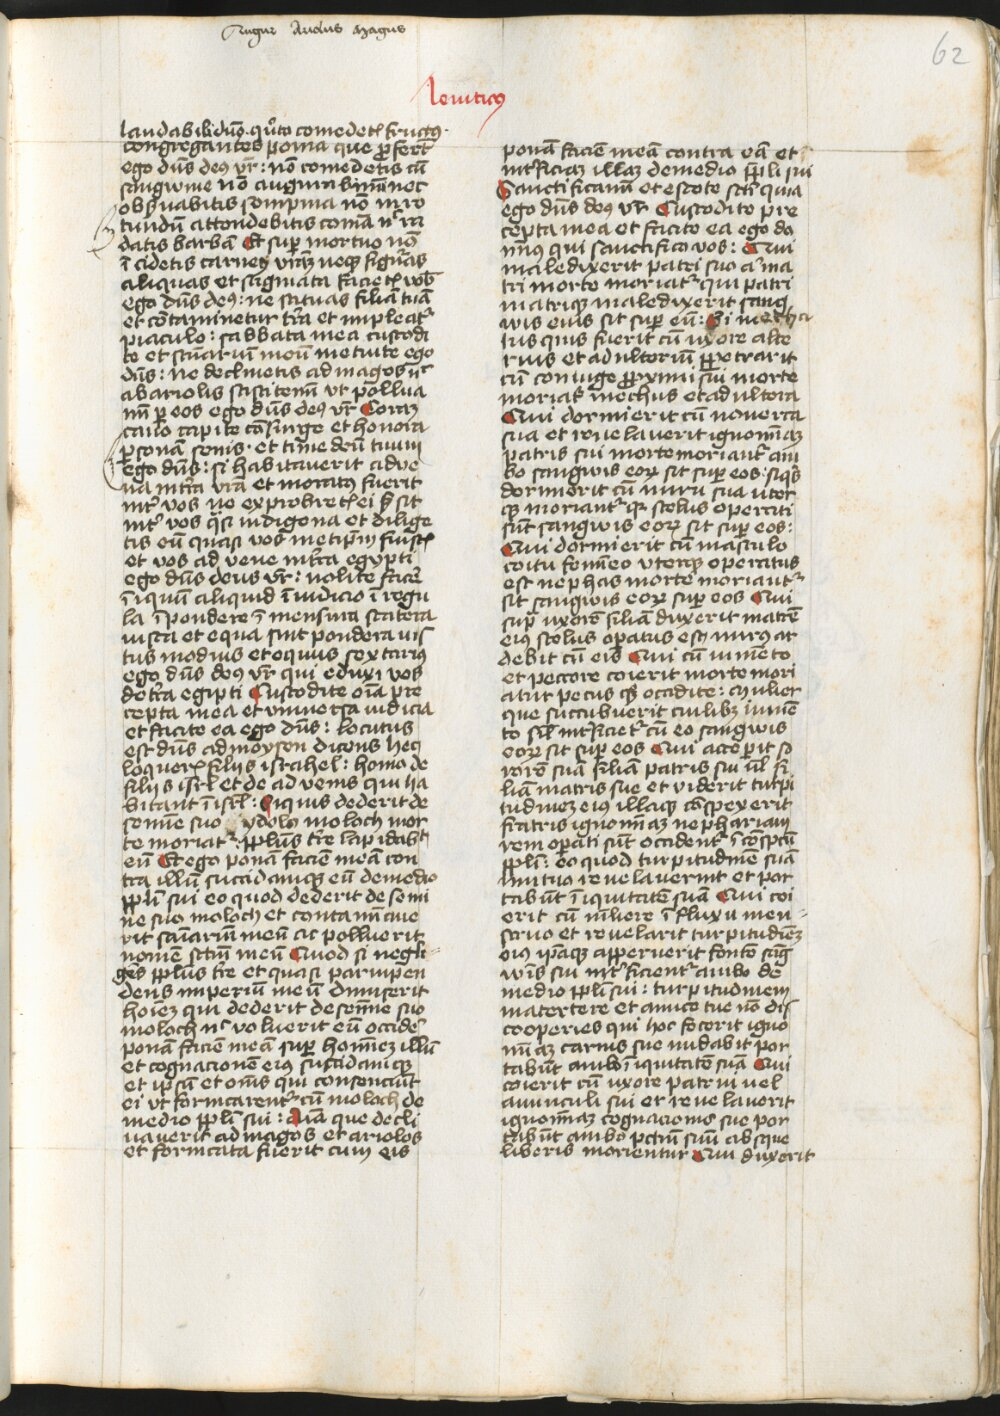 Augur Ariolus Magus
62
leuiticus
laudabil' dūo. qrto comedetꝭ fructus
congregantes poma que ꝓfert
ego dūs deꝯ vr̄: nō comedetis cū
sangwine nō augurabimī nec
obßuabitis sompnia nō in ro
tundū attondebitis comā nͨ ra
datis barbā Et suꝑ mortuo nō
ī cidetis carneꝫ vrāꝫ neqꝫ figuras
aliquas et stigmata facietꝭ vob̄
ego dūs deꝯ: ne statuas filiā tuā
et cōtaminetur trā et impleatͬ
piaculo: sabbata mea custodi
te et scūariū meū metuite ego
dūs: ne declinetis ad magos nͨ
ab ariolis sciscitemī ut pollua
mī ꝑ eos ego dūs deꝯ vr̄ Coraꝫ
cano capite cōsurge et honora
ꝑsonā senis. et time deū tuum
ego dūs: si habitauerit adue
na in trā vrā et moratꝯ fuerit
intͬ vos ne exprobretꝭ ei ß sit
intͬ vos qͣsi indigena et dilige
tis eū quasi vos metipͥm fuistꝭ
et vos ad vene in trā egypti
ego dūs deus vr̄: nolite facer̄
īiquū aliquid ī iudicio ī regu
la ī pondere ī mensura statera
iusta et equa sint pondera iuſ
tus modius et equus sextarius
ego dūs deꝯ vr̄ qui eduxi vos
de trā egipti Custodite oīa pre
cepta mea et vniuersa iudicia
et facite ea ego dūs: locutus
est dūs ad moysen dicens hec
loquerꝭ filiis israhel: homo de
filiis isrl̄ et de ad venis qui ha
bitant ī isrl̄: Siquis dederit de
semine suo ydolo moloch mor
te moriatͬ: ppl̄us tr̄e lapidabͭ
eū Et ego ponā faciē meā con
tra illū succidamqꝫ eū de medio
ppl̄i sui eo quod dederit de semi
ne suo moloch et contaminaue
rit scūariū meū ac polluerit
nomen sctm̄ meū Quod si negli=
gēs ppl̄us tr̄e et quasi paruipen
dens imperiū meū dimiserit
hoīeꝫ qui dederit de semīe suo
moloch nͨ voluerit eū occiđe
ponā faciē meā suꝑ homineꝫ illū
et cognacionē eiꝯ succidamqꝫ
et ipsū et om̄s qui consenciūt
ei ut fornicarentͬ cū moloch de
medio ppl̄i sui: Aīa que decli
nauerit ad magos et ariolos
et fornicata fuerit cum eis
ponā faciē meā contra eā et
intͬficiaꝫ illaꝫ de medio ppl̄i sui
Sanctificamī et estote scti quia
ego dūs deꝯ vr̄ Custodite pre
cepta mea et facite ea ego do
mīnꝯ qui sanctifico vos: Qui
maledixerit patri suo aͭ ma
tri morte moriatͬ qui patri
matriqꝫ maledixerit sang
wis eius sit suꝑ eū: Si mecha
tus quis fuerit cū uxore alte
rius et adulteriū ꝑpetrarit
cū coniuge ꝓximi sui morte
moriatͬ mechus et adultera
Qui dormierit cū nouerca
sua et reuelauerit ignomīaꝫ
patris sui morte moriantͬ am
bo sangwis eoꝝ sit suꝑ eos: siqͥs
dormierit cū nuru sua uter
qꝫ moriantͬ qꝛ scelus operati
sūt sangwis eoꝝ sit suꝑ eos:
Qui dormierit cū masculo
coitu femineo vterqꝫ operatus
est nephas morte moriantͬ
sit sangwis eoꝝ suꝑ eos Qui
suꝑ uxorē filiā duxerit matrē
eiꝯ scelus oꝑatus est viuꝯ ar
debit cū eis Qui cū iumēto
et peccore coierit morte mori
atur pecus qͦꝫ occidite: mulier
que succubuerit cuilibꝫ iumē
to sil̄ intͬficietͬ cū eo sangwis
eoꝝ sit suꝑ eos Qui acceꝑit so
rorē suā filiā patris sui ul̄ fi
liā matris sue et viderit turpi
tudineꝫ eiꝯ illaqꝫ cōspexerit
fratris ignomīaꝫ nephariam
rem operati sūt occidentͬ ī cōspctū
ppl̄i: eo quod turpitudinē suā
mutuo reuelauerint et por
tabūt īiquitatē suā Qui coi
erit cū muliere ī fluxu men=
struo et reuelarit turpitudineꝫ
eiꝯ ipaqꝫ apperuerit fontē sāg
wīs sui intͬficientͬ ambo de
medio ppl̄i sui: turpitudinem
matertere et amice tue nō diſ
cooperies qui hoc fecerit igno
mīaꝫ carnis sue nudabit por
tabūt ambo īiquitatē suā Qui
coierit cū uxore patrui uel
auunculi sui et reuelauerit
ignomīaꝫ cognacionis sue por
tabūt ambo pctm̄ suū absque
liberis morientur Qui duxerit